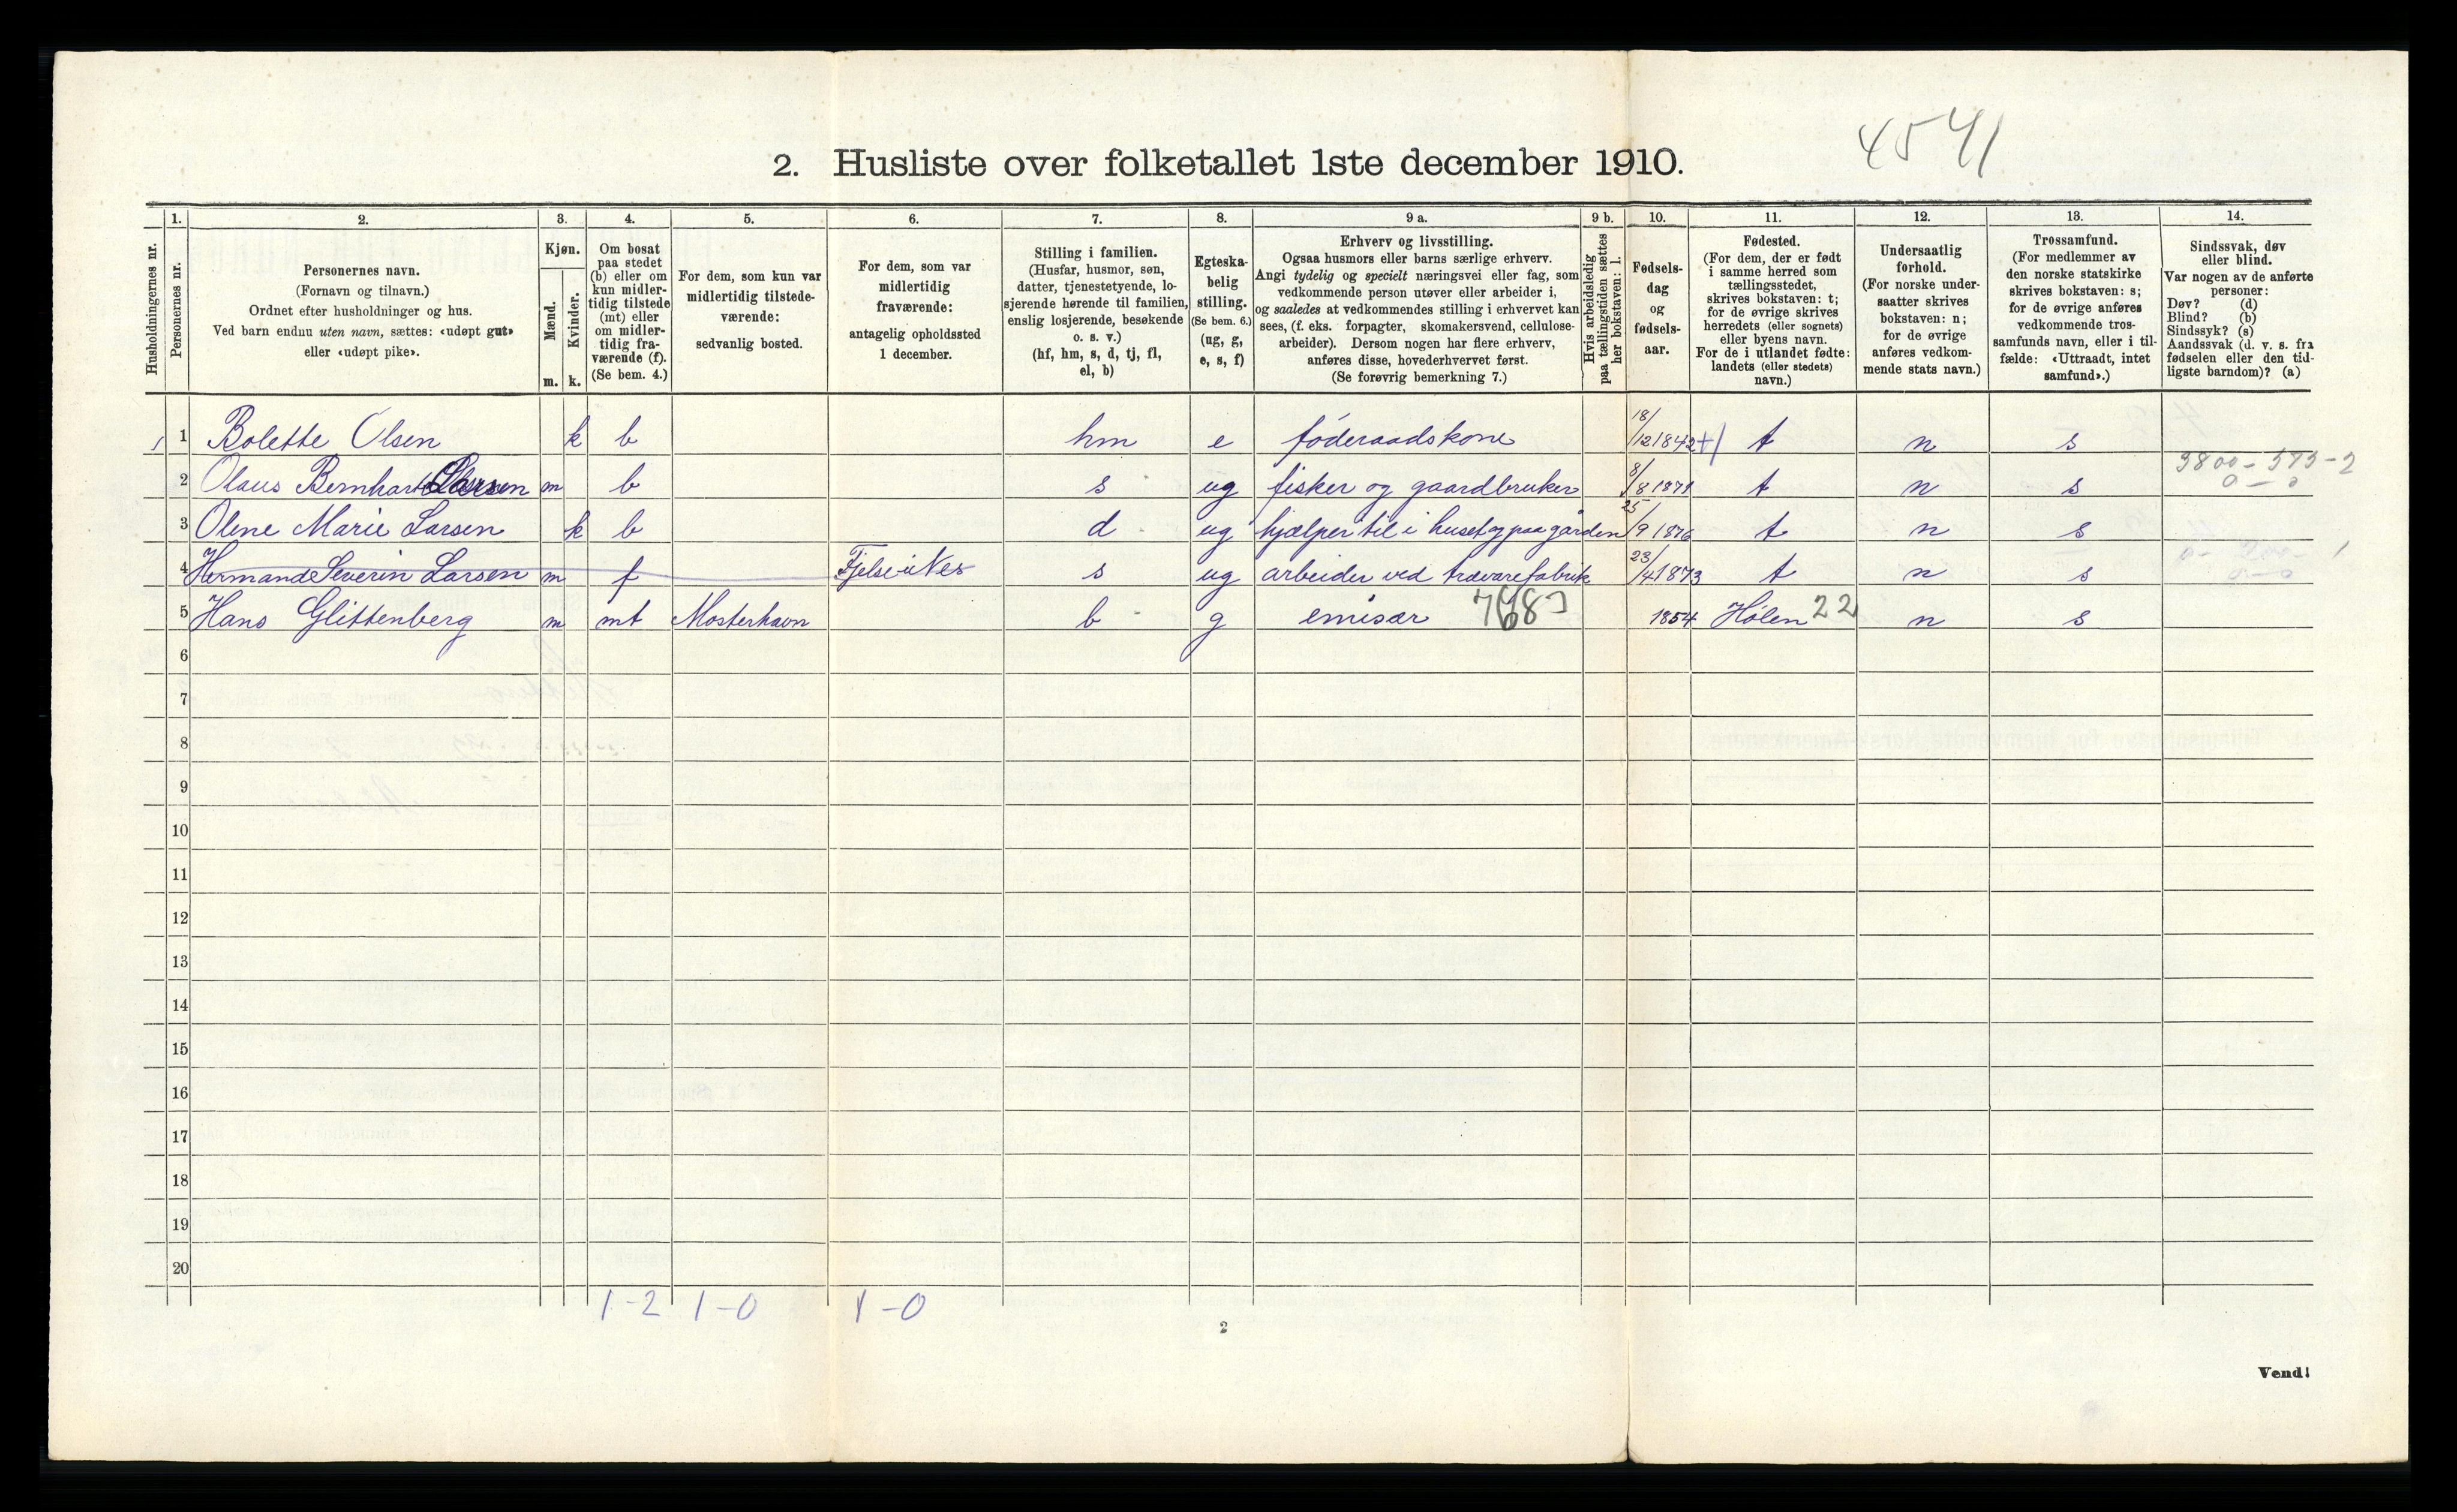 4541
2. Husliste over folketallet 1ste december 1910.
1. 2. 3. 4. 5. 6. 7. 8. 9 a. 9 b. 10. 11. 12. 13. 14.
Husholdningernes nr.
Personernes nr.
Personernes navn.
(Fornavn og tilnavn.)
Ordnet efter husholdninger og hus.
Ved barn endnu uten navn, sættes: «udøpt gut»
eller «udøpt pike».
Kjøn.
Mænd.
Kvinder.
m. k.
Om bosat
paa stedet
(b) eller om
kun midler-
tidig tilstede
(mt) eller
om midler-
tidig fra-
værende (f).
(Se bem. 4.)
For dem, som kun var
midlertidig tilstede-
værende:
sedvanlig bosted.
For dem, som var
midlertidig
fraværende:
antagelig opholdssted
1 december.
Stilling i familien.
(Husfar, husmor, søn,
datter, tjenestetyende, lo-
sjerende hørende til familien,
enslig losjerende, besøkende
o. s. v.)
(hf, hm, s, d, tj, fl,
el, b)
Egteska-
belig
stilling.
(Se bem. 6.)
(ug, g,
e, s, f)
Erhverv og livsstilling.
Ogsaa husmors eller barns særlige erhverv.
Angi tydelig og specielt næringsvei eller fag, som
vedkommende person utøver eller arbeider i,
og saaledes at vedkommendes stilling i erhvervet kan
sees, (f. eks. forpagter, skomakersvend, cellulose-
arbeider). Dersom nogen har flere erhverv,
anføres disse, hovederhvervet først.
(Se forøvrig bemerkning 7.)
Hvis arbeidsledig
paa tællingstiden sættes
her bokstaven: l.
Fødsels-
dag
og
fødsels-
aar.
Fødested.
(For dem, der er født
i samme herred som
tællingsstedet,
skrives bokstaven: t;
for de øvrige skrives
herredets (eller sognets)
eller byens navn.
For de i utlandet fødte:
landets (eller stedets)
navn.)
Undersaatlig
forhold.
(For norske under-
saatter skrives
bokstaven: n;
for de øvrige
anføres vedkom-
mende stats navn.)
Trossamfund.
(For medlemmer av
den norske statskirke
skrives bokstaven: s;
for de øvrige anføres
vedkommende tros-
samfunds navn, eller i til-
fælde: «Uttraadt, intet
samfund».)
Sindssvak, døv
eller blind.
Var nogen av de anførte
personer:
Døv? (d)
Blind? (b)
Sindssyk? (s)
Aandssvak (d. v. s. fra
fødselen eller den tid-
ligste barndom)? (a)
1 Bolette Olsen k b hm e föderaadskone 18/12 1842 t n s
2 Olaus Bernhard Larsen m b s ug fisker og gaardbruker 8/8 1871 t n s 3800-575-2
0-0
3 Olene Marie Larsen k b d ug hjælper til i huset og paa gården 25/9 1876 t n s
4 Hermand Severin Larsen m f s ug arbeider ved trævarefabrik 23/4 1873 t n s
5 Hans Glittenberg m mt Mosterhavn b g emisær 1854 Hölen 22 n s
6
7
8
9
10
11
12
13
14
15
16
17
18
19
20
1-2 1-0 1-0
2
Vend!